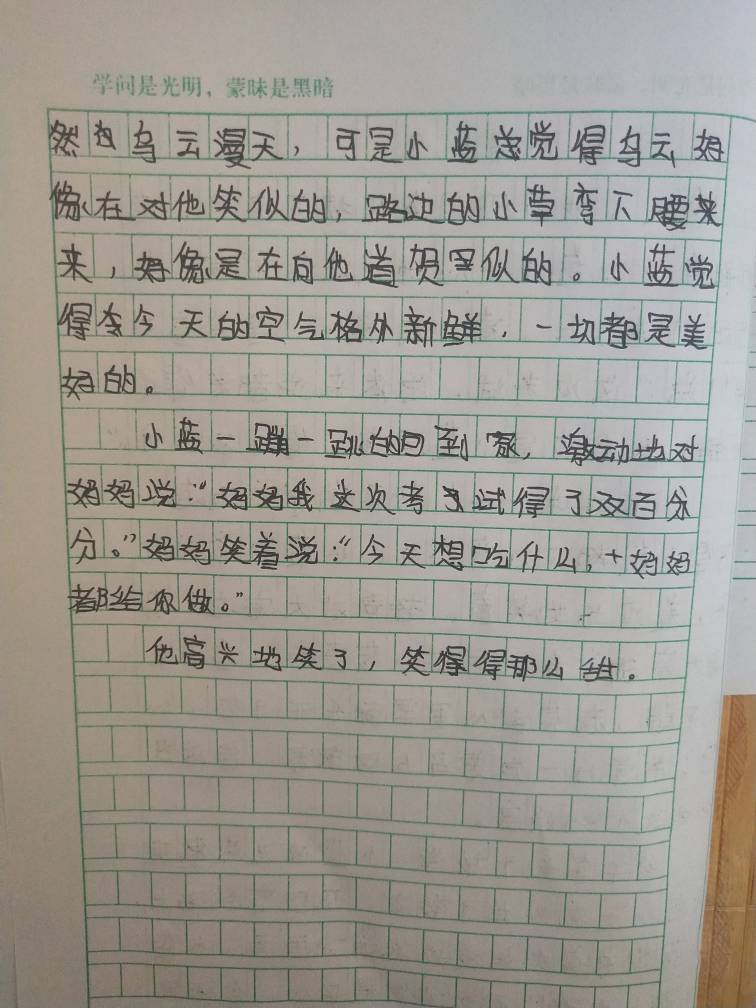 学问是光明，蒙昧是黑暗
然乌云漫天，可是小蓝总觉得乌云好
像在对他笑似的，路边的小草弯下腰来
来，好像是在向他道贺似的。小蓝觉
得今天的空气格外新鲜，一切都是美
好的。
小蓝一蹦一跳的回到家，激动地对
妈妈说：“妈妈我这次考试得了双百分
分。”妈妈笑着说：“今天想吃什么，妈妈
都给你做。”
他高兴地笑了，笑得得那么甜。